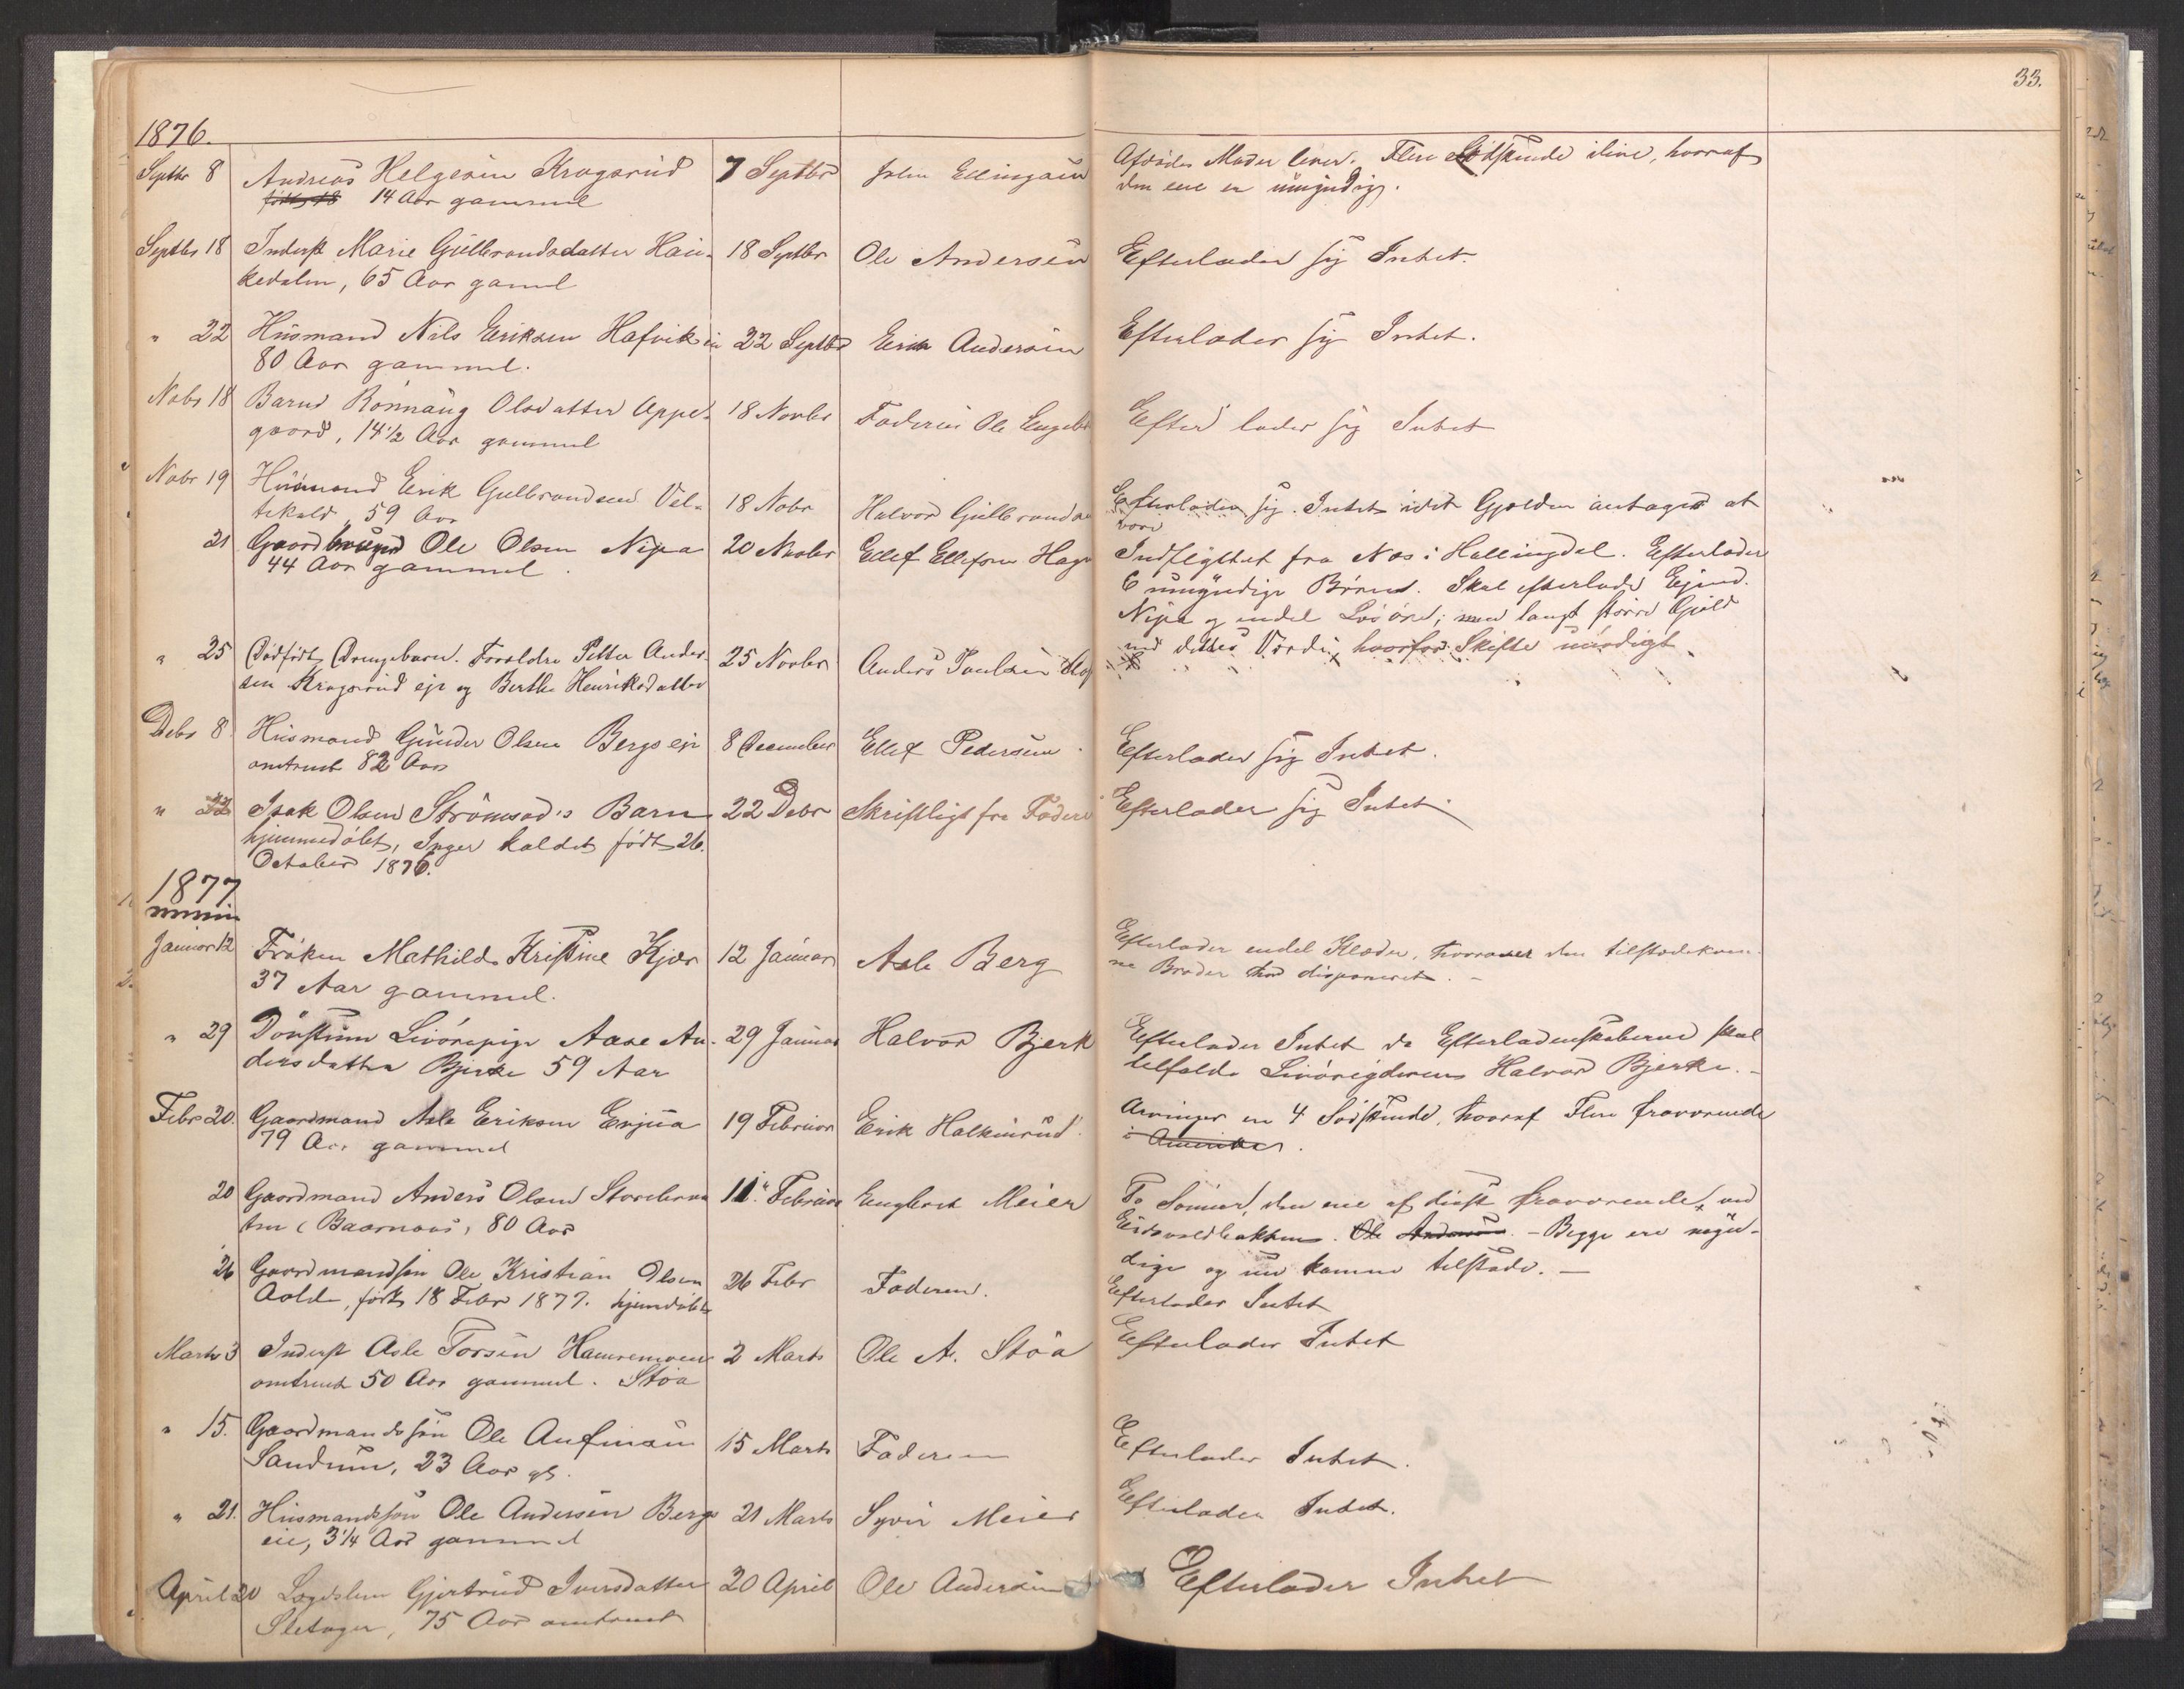 33.
1876.
Septbr 8 Andreas Helgesen Kragsrud 7 Septbr John Ellingsen Afdødes Moder lever. Flere Sødskende ilive, hvoraf
14 Aar gammel den ene er umyndig.
Septbr 18 Inderst Marie Gulbrandsdatter Hau- 18 Septbr Ole Andersen Efterlader sig Intet.
kedalen, 65 Aar gaml
" 22 Husmand Nils Eriksen Hafvik 22 Septbr Erik Andersen Efterlader sig Intet.
80 Aar gammel.
Nobr 18 Barnet Rönnaug Olsdatter Appel- 18 Novbr Faderen Ole Engebr Efterlader sig Intet
gaard, 14 1/2 Aar gammel
Nobr 19 Husmand Erik Gulbrandsen Vel- 18 Nobr Halvor Gulbrands Efterlader sig Intet idet Gjælden antages at
tekald, 59 Aar være
21 Gaardbruger Ole Olsen Nipa 20 Novbr Ellef Ellefsen Hag Indflyttet fra Næs i Hallingdal. Efterlader
44 Aar gammel. 6 umyndige Børn. Skal efterlade Eiend.
Nipa og endel Lösöre; men langt större Gjæld
" 25 Dødfødt Drengebarn. Forældre Petter Ander- 25 Novbr Anders Paulsen end dettes Værdi, hvorfor Skifte unödigt
sen Kragsrud eje og Berthe Henriksdatter
Debr 8 Husmand Gunder Olsen Bergs eje 8 December Ellef Pedersen Efterlader sig Intet.
omtrent 82 Aar
" 22 Isak Olsen Strömsod's Barn 22 Debr Skriftligt fra Fader Efterlader sig Intet
hjemmedöbt, Inger kaldet født 26.
October 1876.
1877
Januar 12 Fröken Mathilde Kristine Kjær 12 Januar Asle Berg Efterlader endel Klæder, hvorover den tilstedekom-
37 Aar gammel. ne Broder har disponeret. -
" 29 Livörspige Aase An- 29 Januar Halvor Bjerk Efterlader Intet da Efterladenskaberne skal
dersdatter Bjerke 59 Aar tilfalde Livörsyderen Halvor Bjerke. -
Febr 20. Gaardmand Asle Eriksen Enjua 19 Februar Erik Halkinrud Arvinger er 4 Sødskende, hvoraf Flere fraværende
79 Aar gammel i Amerika.
20 Gaardmand Anders Olsen Storebraa 11 Februar Engebret Meier To Sønner, den ene af dissse fraværende, ved
ten i Baarnaas, 80 Aar Eidsvoldbakken. Ole Andersen. - Begge ere myn-
26 Gaardmandssön Ole Kristian Olsen 26 Febr Faderen. dige og nu komne tilstede. -
Aolde, født 18 Febr 1877. hjemdöbt Efterlader Intet
Marts 3 Inderst Asle Torsen Hamremoen 2 Marts Ole A. Stöa Efterlader Intet
omtrent 50 Aar gammel. Stöa
" 15. Gaardmandssön Ole Anfinsen 15 Marts Faderen Efterlader Intet.
Sandum, 23 Aar gl.
" 21. Husmandssön Ole Andersen Bergs 21 Marts Syver Meier Efterlader Intet.
eie, 3 1/4 Aar gammel
April 20 Lægdslem Gjertrud Iversdatter 20 April Ole Andersen Efterlader Intet
Sletager, 75 Aar omtrent